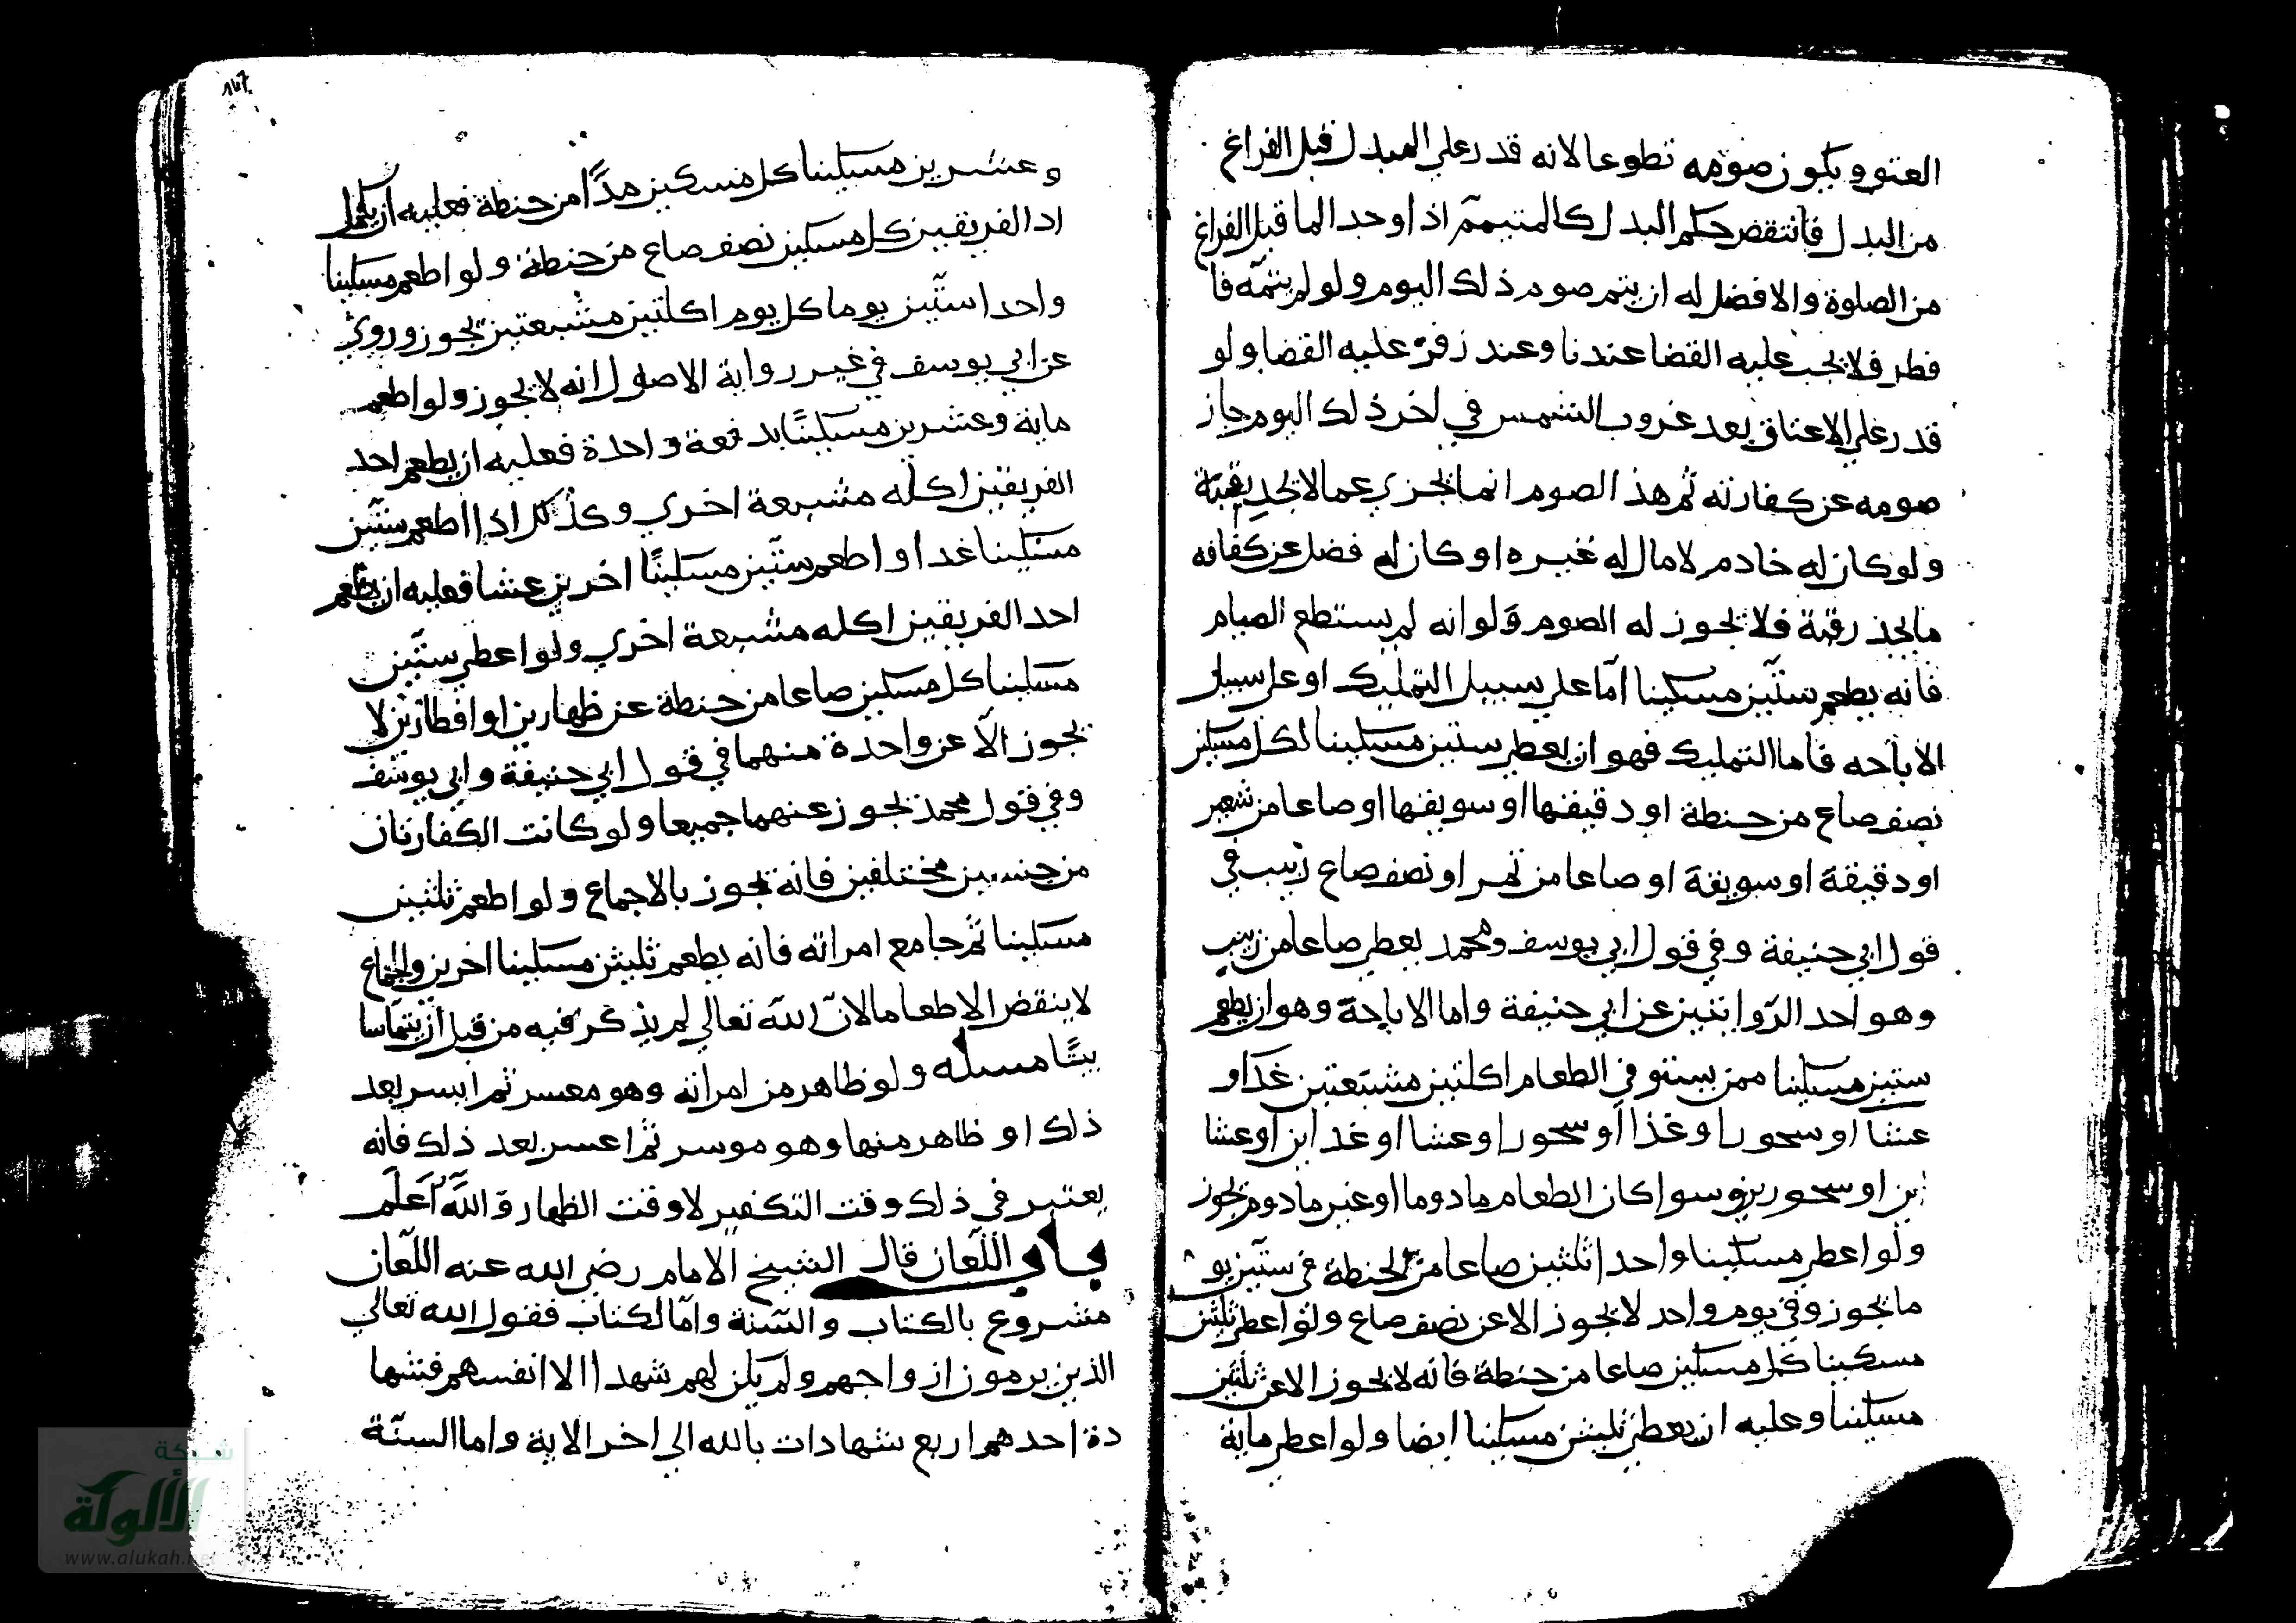 العتق ويكون صومه تطوعا لانه قدر علي المبدل قبل الفراغ
من البدل فانتقض حكم البدل كالمتيمم اذا وجد الما قبل الفراغ
من الصلوة والافضل له ان يتم صوم ذلك اليوم ولو لم يتمه فا
فطر فلا يجب عليه القضا عندنا وعند زفر عليه القضا ولو
قدر علي الاعتاق بعد غروب الشمس في اخر ذلك اليوم جاز
صومه عن كفارته ثم هذ الصوم انما يجزي عما لا يجد رقبة
ولو كان له خادم لا مال له غيره او كان له فضل عن كفافه
ما يجد رقبة فلا يجوز له الصوم ولو انه لم يستطع الصيام
فانه يطعم ستين مسكينا اما علي سبيل التمليك او علي سبيل
الاباحه فاما التمليك فهو ان يعطي ستين مسكينا لكل مسكين
نصف صاع من حنطة او دقيقها او سويقها او صاعا من شعير
او دقيقة او سويقة او صاعا من تمر او نصف صاع زبيب في
قول ابي حنيفة وفي قول ابي يوسف ومحمد يعطي صاعا من زبيب
وهو احد الروايتين عن ابي حنيفة واما الاباحة وهو ان يطعم
ستين مسكينا ممن يستو في الطعام اكلتين مشبعتين غدا و
عشا او سحورا وغذا او سحورا وعشا او غد اين او عشا
اين او سحورين وسوا كان الطعام مادوما او غير مادوم يجوز
ولو اعطي مسكينا واحدا ثلثين صاعا من الحنطة في ستين يو
ما يجوز وفي يوم واحد لا يجوز الا عن نصف صاع ولو اعطي ثلثين
مسكينا كل مسكين صاعا من حنطة فانه لا يجوز الا عن ثلثين
مسكينا وعليه ان يعطي ثلثين مسكينا ايضا ولو اعطي ماية
١٤٦
وعشرين مسكينا كل مسكين مدا من حنطة فعليه ان يكمل
اد الفريقين كل مسكين نصف صاع من حنطة ولو اطعم مسكينا
واحدا ستين يوما كل يوم اكلتين مشبعتين يجوز وروي
عن ابي يوسف في غير رواية الاصول انه لا يجوز ولو اطعم
ماية وعشرين مسكينا بد فعة واحدة فعليه ان يطعم احد
الفريقين اكله مشبعة اخري وكذلك اذا اطعم ستين
مسكينا غدا و اطعم ستين مسكينا اخرين عشا فعليه ان يطعم
احد الفريقين اكله مشبعة اخري ولو اعطي ستين
مسكينا كل مسكين صاعا من حنطة عن ظهارين او افطارين لا
يجوز الا عن واحدة منهما في قول ابي حنيفة وابي يوسف
وفي قول محمد يجوز عنهما جميعا ولو كانت الكفارتان
من جنسين مختلفين فانه يجوز بالاجماع ولو اطعم ثلثين
مسكينا ثم جامع امراته فانه يطعم ثلثين مسكينا اخرين والجماع
لا ينقض الاطعام لان الله تعالي لم يذكر فيه من قبل ان يتماسا
بيتا مسله ولو ظاهر من امراته وهو معسر ثم ايسر بعد
ذلك او ظاهر منها وهو موسر ثم اعسر بعد ذلك فانه
يعتبر في ذلك وقت التكفير لا وقت الظهار والله اعلم
باب اللعان قال الشيخ الامام رضي الله عنه اللعان
مشروع بالكتاب والسنة واما الكتاب فقول الله تعالي
الذين يرمون ازواجهم ولم يكن لهم شهدا الا انفسهم فشها
دة احدهم اربع شهادات بالله الي اخر الاية واما السنة
شبكة
الألوكة
www.alukah.net